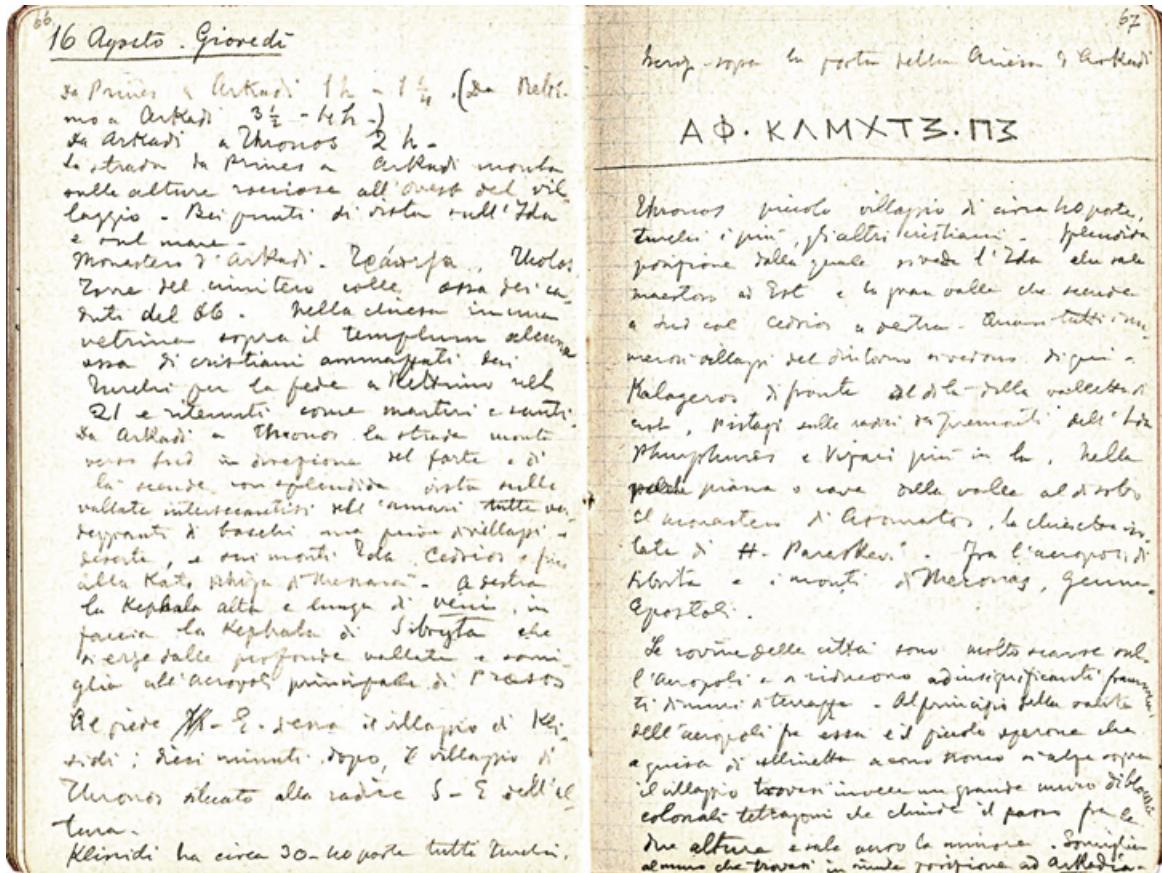 66
16 Agosto. Giovedì
da Prinès a Arkadi 1 h - 1 ¼. (Da Reti-
mo a Arkadi 3½ - 4 h -)
da Arkadi a Thronos 2 h -
La strada da Prinès a Arkadi monta
sulle alture rocciose all'ovest del vil-
laggio - Bei punti di vista sull'Ida
e sul mare -
Monastero d'Arkadi. Τράπεζα, Tholos
Torre del cimitero colle ossa dei ca-
duti del 66. Nella chiesa in una
vetrina sopra il templum alcune
ossa di cristiani ammazzati dai
Turchi per la fede a Rettimo nel
21 e ritenuti come martiri e santi.
Da Arkadi a Thronos la strada monta
verso Sud in direzione del forte e di
là scende con splendida vista sulle
vallate intersecantisi dell'Amari tutte ver-
deggianti di boschi ma prive di villaggi e
deserte, e sui monti Ida Cedrios e fin
alla Kato Rhiza di Messarà - A destra
la Kephala alta e lunga di Veni, in
faccia la Kephala di Sibryta che
si erge dalle profonde vallate e somi-
glia all'acropoli principale di Praesos
Al piede N - E - di essa il villaggio di Kli-
sidi; dieci minuti dopo, il villaggio di
Thronos situato alla radice S - E dell'al-
tura -
Klisidi ha circa 30-40 porte tutti Turchi.
67
Iscriz. sopra la porta della Chiesa d'Arkadi
ΑΦ·ΚΛΜΧΤΖ·ΠΖ
Thronos piccolo villaggio di circa 40 porte,
turchi i più, gli altri cristiani - Splendida
posizione dalla quale si vede l'Ida che sale
maestoso ad Est e la gran valle che scende
a Sud col Cedrios a destra - Quasi tutti i nu-
merosi villaggi del dintorno si vedono di qui -
Kalogeros di fronte al di là della valletta ad
est, Vistagi sulle radici dei premonti dell'Ida
Phurphurès e Vizari più in là, Nella
piana o cava della valle al disotto
il monastero di Asomatos, la chiesetta iso-
lata di H. Paraskevi. Fra l'acropoli di
Sibrita e i monti di Meronas, Genna
Apostoli.
Le rovine della città sono molto scarse sul-
l'acropoli e si riducono ad insignificanti frammen-
ti di muri di terrazze - Al principio della salita
dell'acropoli fra essa e il piccolo sperone che
a guisa di collinetta a cono tronco si alza sopra
il villaggio trovasi invece un grande muro di blocchi
colossali tetragoni che chiude il passo fra le
due alture e sale verso la minore. Somiglia
al muro che trovasi in simile posizione ad Arkadia -